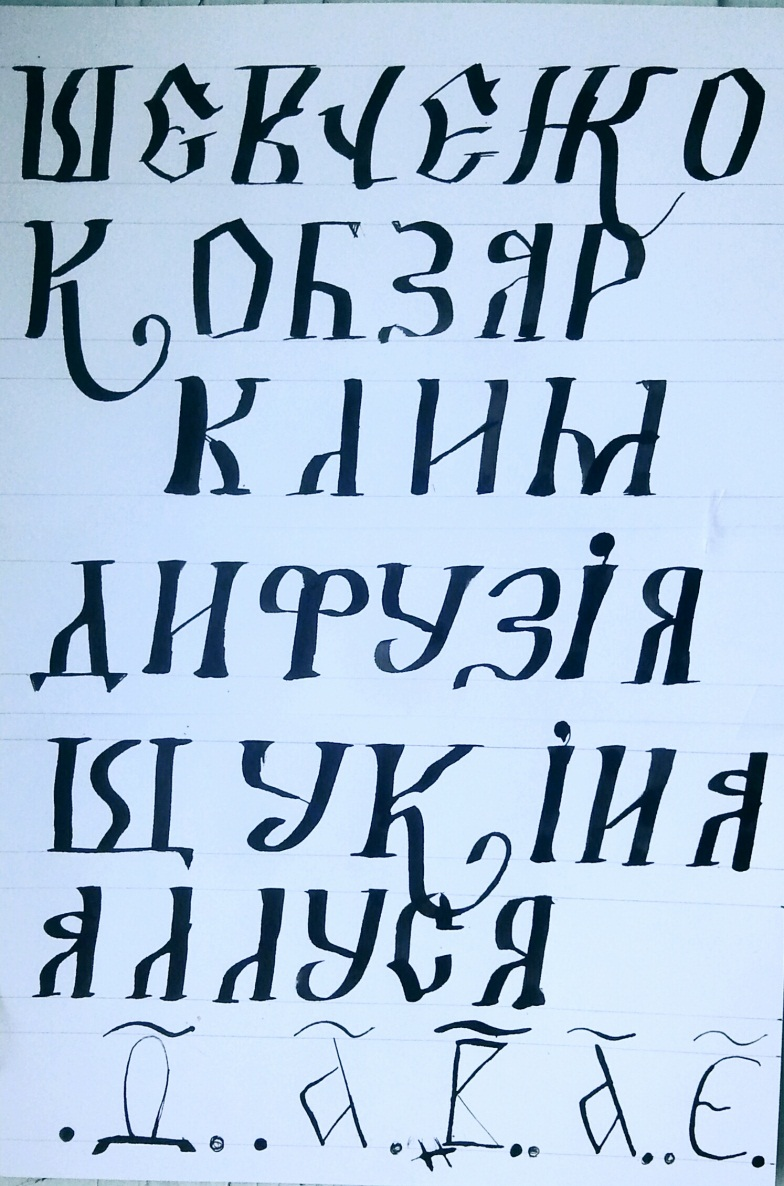 ШЕВЧЕНКО
КОБЗАР
КЛИМ
ДИФУЗІЯ
ЩУКІНА
АЛЛУСЯ
.Д҃.. а҃. В҃.. а҃.. Є҃.